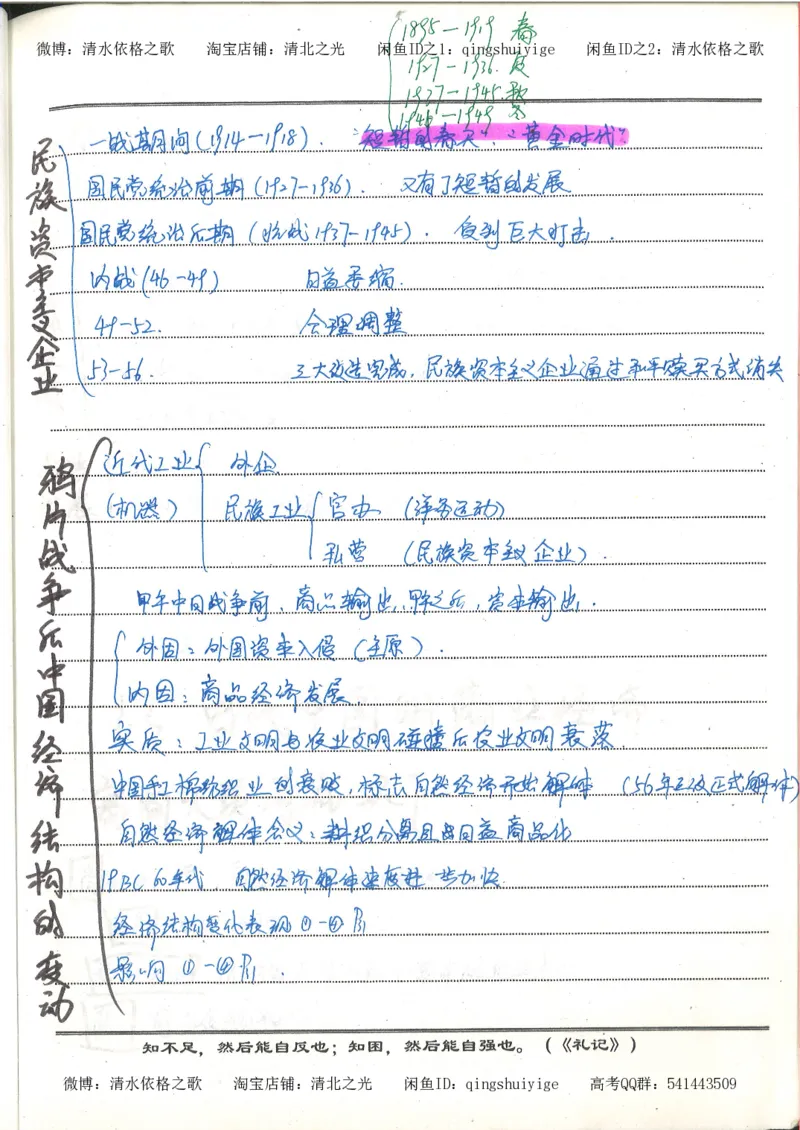 1895—1919 春
微博：清水依格之歌 淘宝店铺：清北之光 闲鱼ID之1：qingshuiyige 闲鱼ID之2：清水依格之歌
1927—1936 夏
1937—1945 秋
1946—1949 冬
民族资本主义企业
一战期间(1914—1918). "短暂的春天", "黄金时代"
国民党统治前期(1927—1936). 又有了短暂的发展
国民党统治后期 (抗战1937—1945). 受到巨大打击.
内战(46—49) 日益萎缩.
49—52. 合理调整
53—56. 三大改造完成, 民族资本主义企业通过和平赎买方式消失
鸦片战争后中国经济结构的变动
近代工业 外企
(机器) 民族工业 官办 (洋务运动)
私营 (民族资本主义企业).
甲午中日战争前, 商品输出, 甲午之后, 资本输出.
外因: 外国资本入侵 (主原).
内因: 商品经济发展.
实质: 工业文明与农业文明碰撞后农业文明衰落.
中国手工棉纺织业的衰败, 标志自然经济开始解体 (56年三改正式解体)
自然经济解体含义: 耕织分离且日益商品化
19BC 60年代 自然经济解体速度进一步加快
经济结构变化表现 ①—④ P1
影响 ①—④ P1.
知不足，然后能自反也；知困，然后能自强也。（《礼记》）
微博：清水依格之歌 淘宝店铺：清北之光 闲鱼ID：qingshuiyige 高考QQ群：541443509